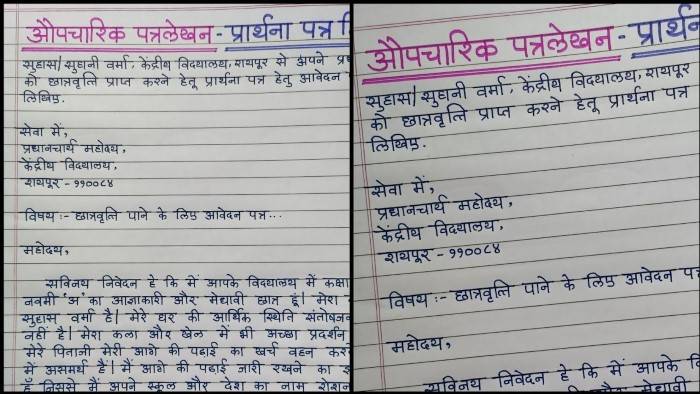 औपचारिक पत्रलेखन - प्रार्थना पत्र
सुहास/सुहानी वर्मा, केंद्रीय विद्यालय, रायपूर से अपने
को छात्रवृत्ति प्राप्त करने हेतू प्रार्थना पत्र हेतु आवेदन
लिखिए.
सेवा में,
प्रधानचार्य महोदय,
केंद्रीय विद्यालय,
रायपूर - ११००८४
विषय :- छात्रवृत्ति पाने के लिए आवेदन पत्र...
महोदय,
सविनय निवेदन है कि में आपके विद्यालय में कक्षा
नवमी 'अ' का आज्ञाकारी और मेधावी छात्र हूं। मेरा
सुहास वर्मा है। मेरे घर की आर्थिक स्थिति
नहीं है। मेरा कला और खेल में भी अच्छा प्रदर्शन
मेरे पिताजी मेरी आगे की पढ़ाई का खर्च वहन
में असमर्थ हैं। मैं आगे की पढ़ाई जारी रखने का
हूँ जिससे मैं अपने स्कूल और देश का नाम रोशन
औपचारिक पत्रलेखन -
सुहास/सुहानी वर्मा, केंद्रीय विदयालय, रायपूर
को छात्रवृत्ति प्राप्त करने हेतू प्रार्थना पत्र
लिखिए.
सेवा में,
प्रधानचार्य महोदय,
केंद्रीय विदयालय,
रायपूर - ११००८४
विषय :- छात्रवृत्ति पाने के लिए आवेदन
महोदय,
सविनय निवेदन है कि में आपके
और मेधावी